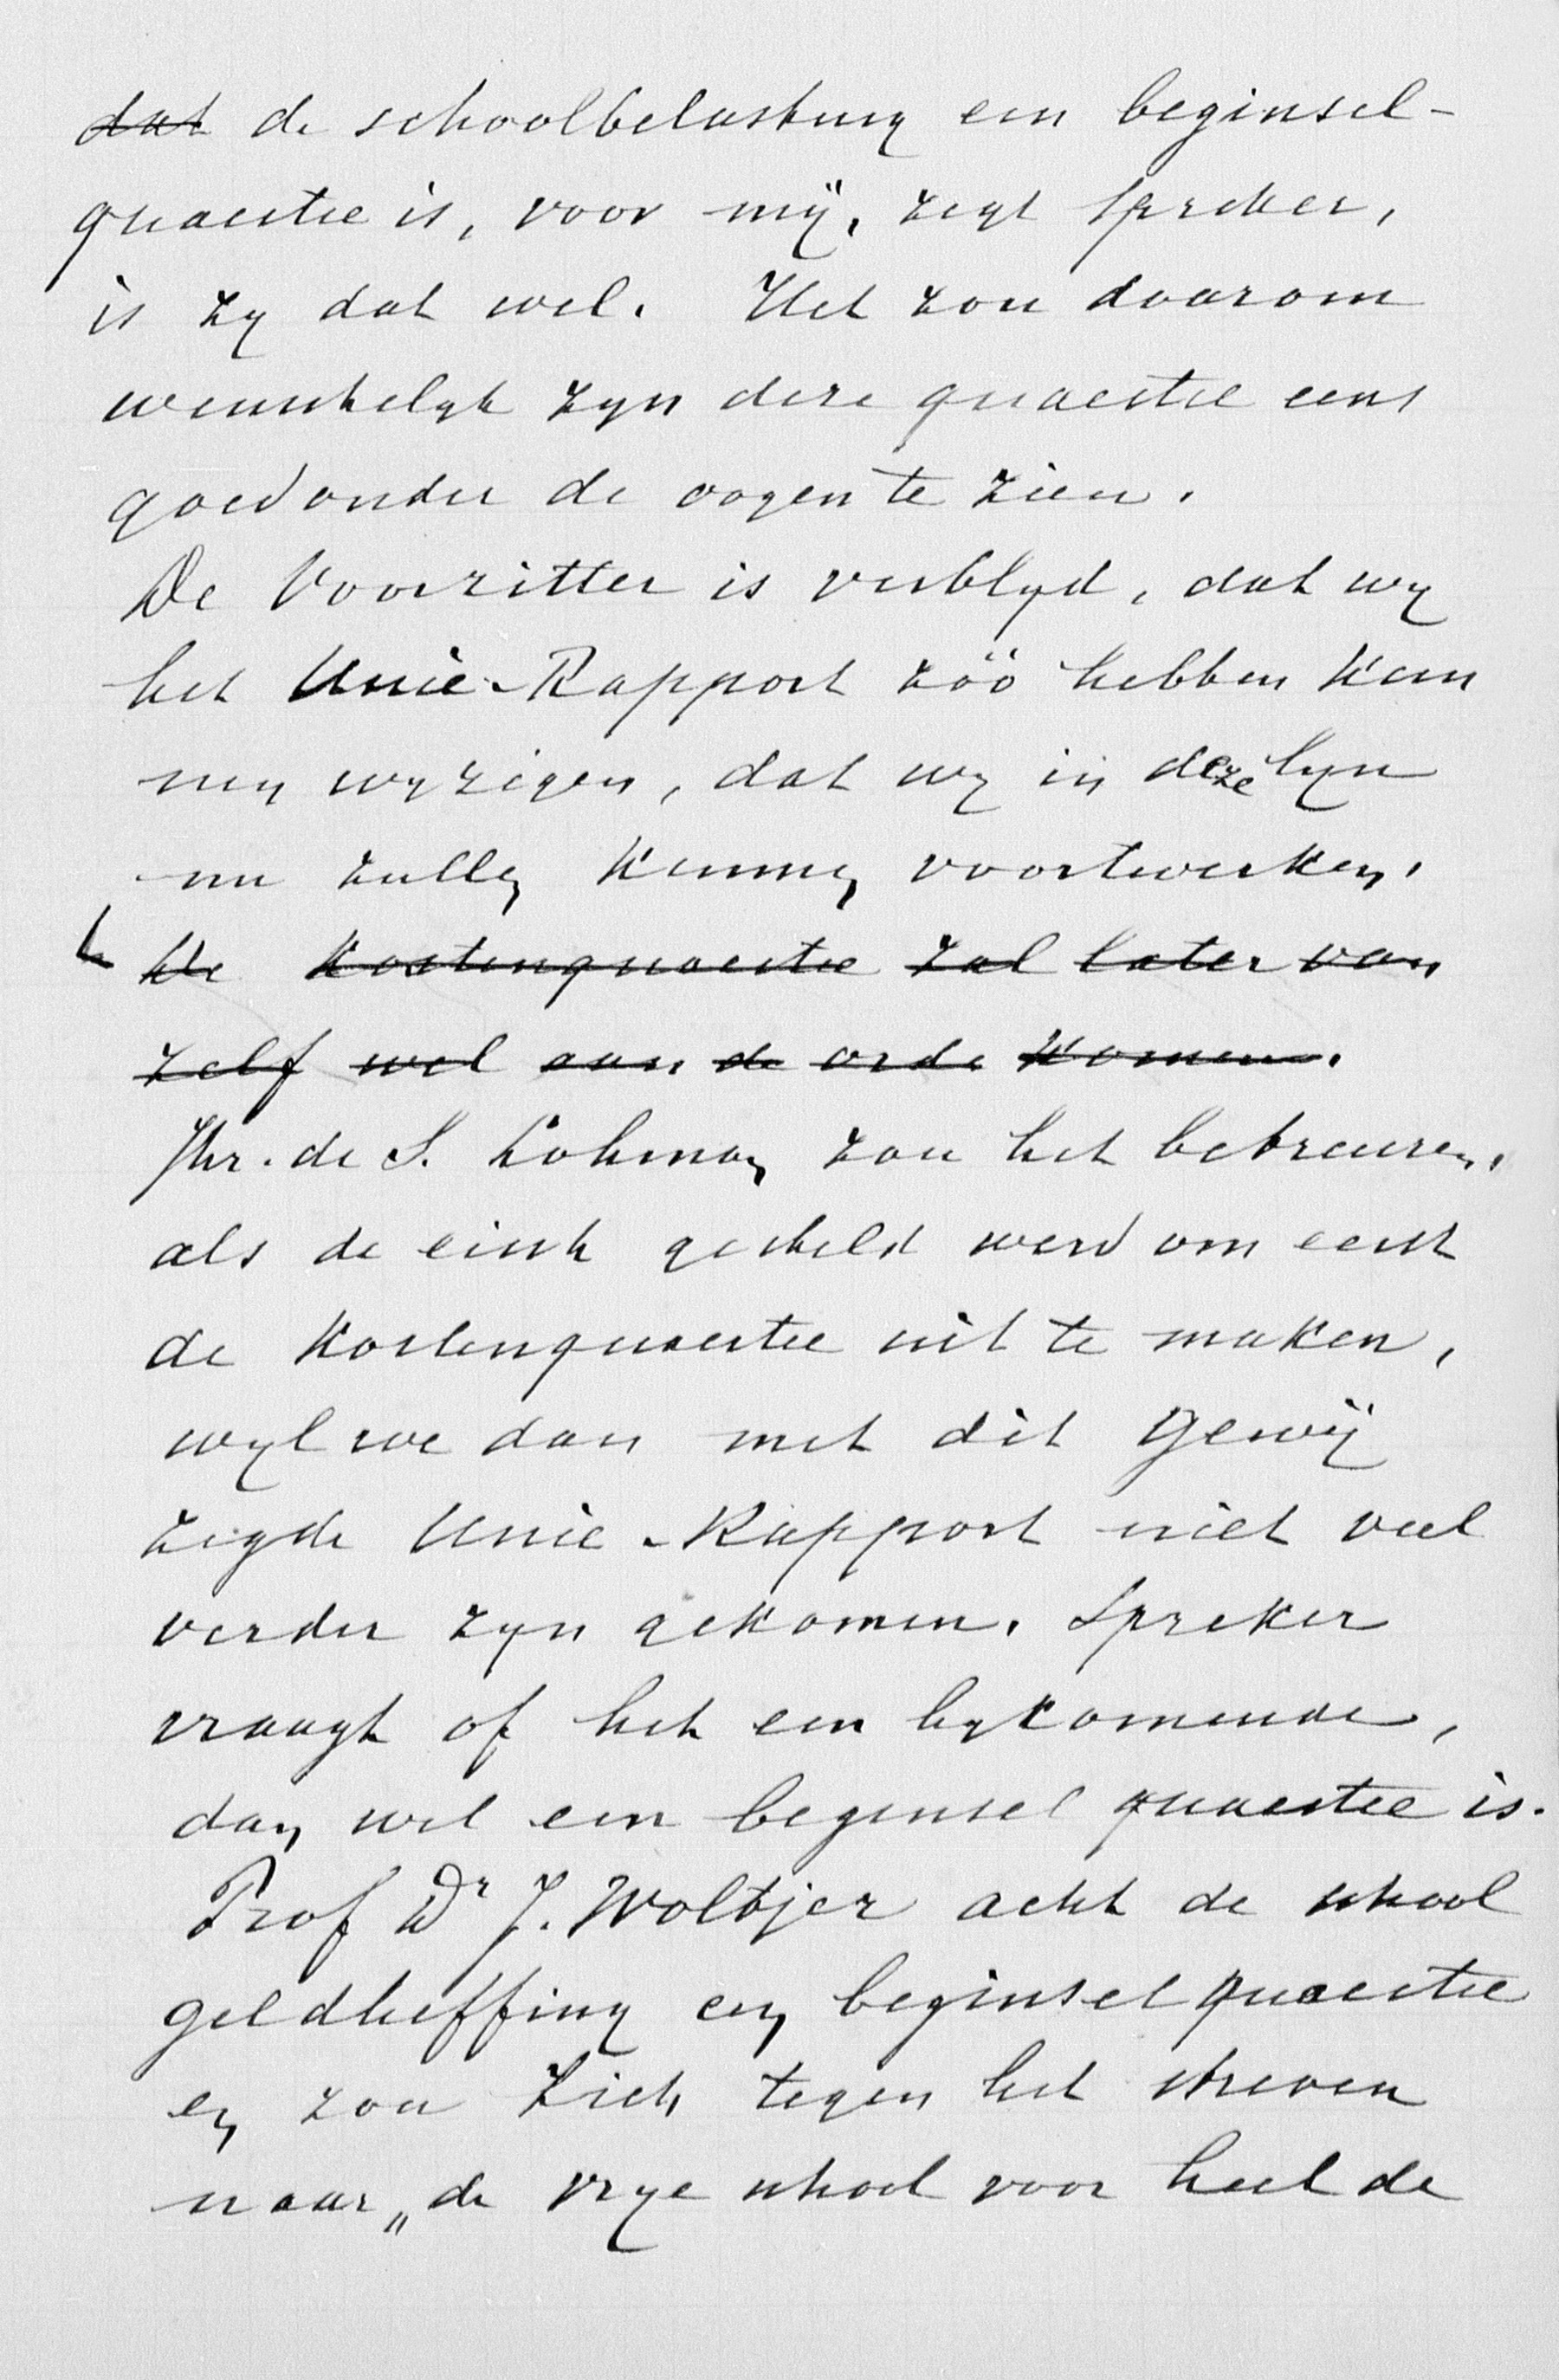 dat de schoolbelasting een beginsel-
quaestie is, voor mij, zegt spreker,
is zy dat wel. Het zou daarom
wenschelyk zyn deze quaestie eens
goed onder de oogen te zien.
De Voorzitter is verblyd, dat wy
het Unie-Rapport zóó hebben kun
nen wyzigen, dat wy in deze lyn
nu zullen kunnen voortwerken.
De kostenquaestie zal later van
zelf wel aan de orde komen.
Jhr. de S. Lohman zou het betreuren,
als de eisch gesteld werd om eerst
de kostenquaestie uit te maken,
wyl we dan met dit gewij
zigde Unie-Rapport niet veel
verder zyn gekomen. Spreker
vraagt of het een bykomende,
dan wel een beginsel quaestie is.
Prof Dr J. Woltjer acht de school
geldheffing een beginselquaestie
en zou zich tegen het streven
naar „de vrye school voor heel de